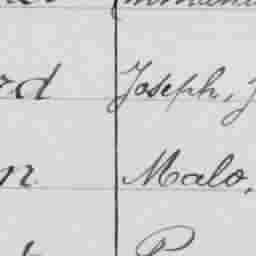 rd Joseph, J
n Malo,